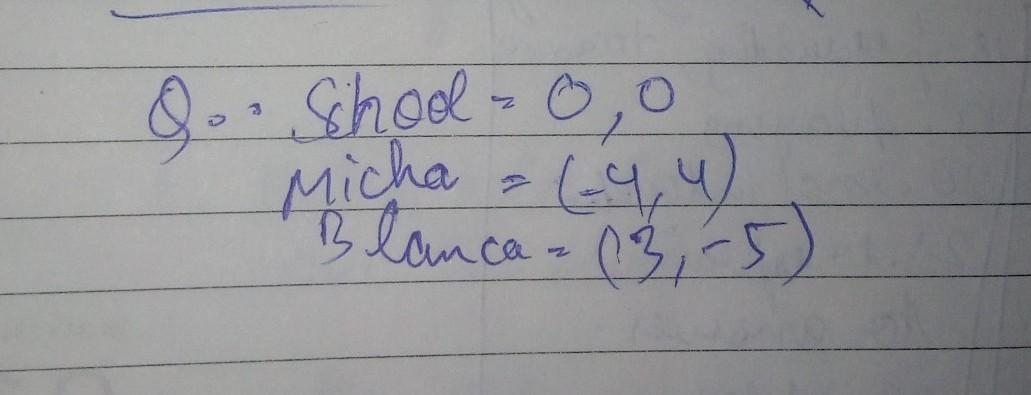 Q.: School = 0,0
Micha = (-4,4)
Blanca = (3,-5)